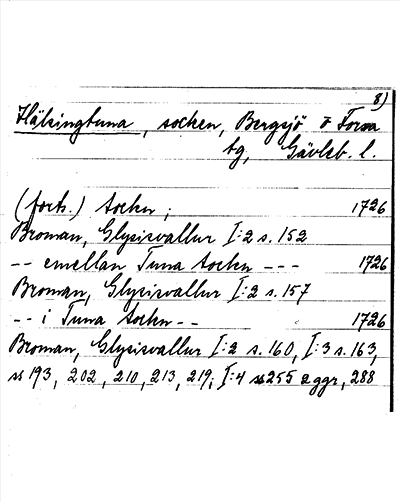 8)
Hälsingtuna, socken, Bergsjö o Forsa
tg, Gävleb. l.
(forts.) Socken; 1726
Broman, Glysisvallur I:2 s. 152
-- emellan Tuna Socken --- 1726
Broman, Glysisvallur I:2 s. 157
-- i Tuna Socken -- 1726
Broman, Glysisvallur I:2 s. 160, I:3 s. 163,
ss 193, 202, 210, 213, 219; I:4 s 255 2 ggr, 288